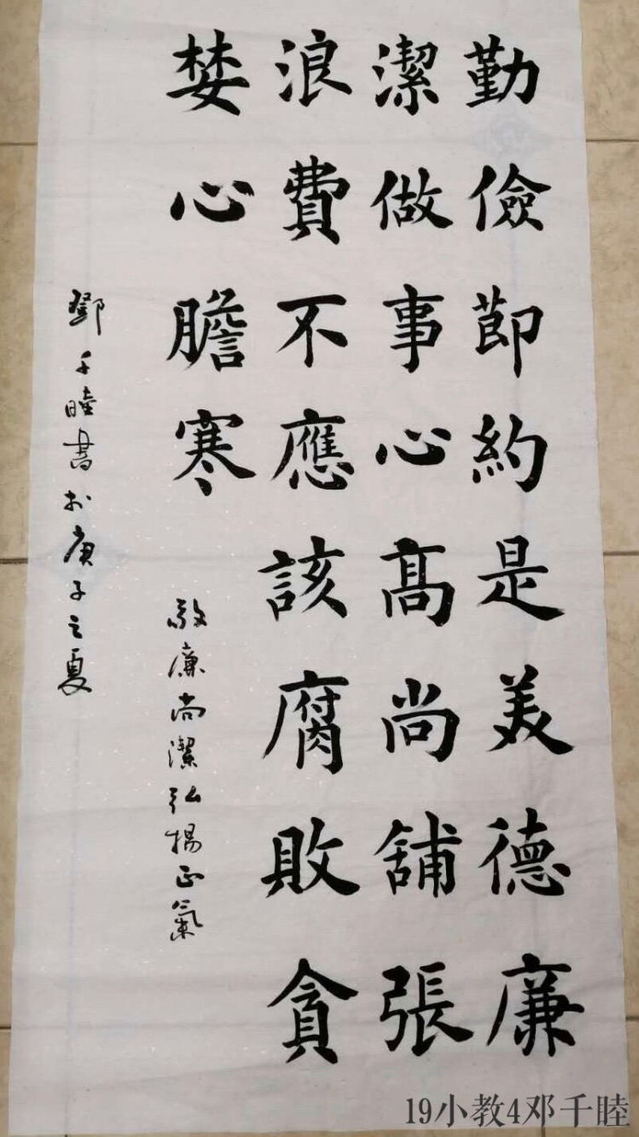 勤儉節約是美德廉
潔做事心高尚舖張
浪費不應該腐敗貪
婪心膽寒
敬廉尚潔弘揚正氣
鄧千睦書於庚子之夏
19小教4邓千睦